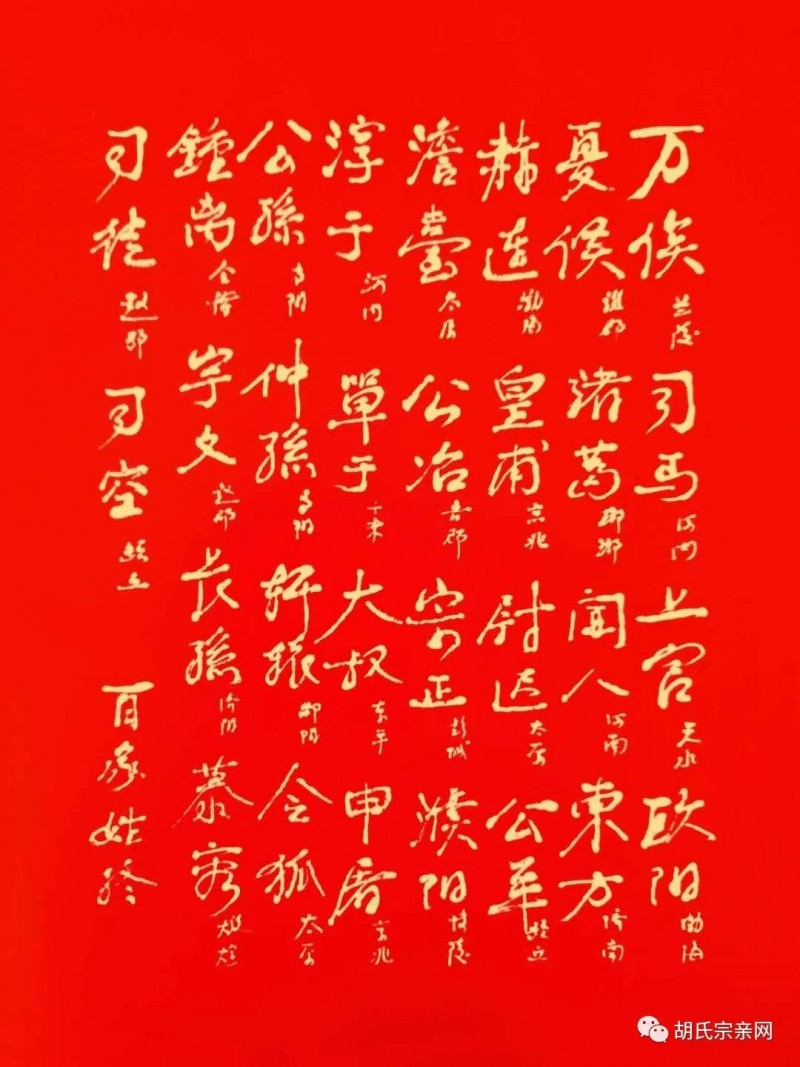 万俟 兰陵 司马 河内 上官 天水 欧阳 渤海
夏侯 譙郡 诸葛 瑯琊 闻人 河南 東方 济南
赫連 渤海 皇甫 京兆 尉迟 太原 公羊 頓丘
澹臺 太原 公冶 鲁郡 宗正 彭城 濮阳 博陵
淳于 河内 單于 千乘 大叔 東平 申屠 京兆
公孫 高阳 仲孫 高阳 軒辕 郃阳 令狐 太原
鍾离 会稽 宇文 赵郡 长孫 济阳 慕容 敦煌
司徒 赵郡 司空 頓丘 百家姓终
胡氏宗亲网